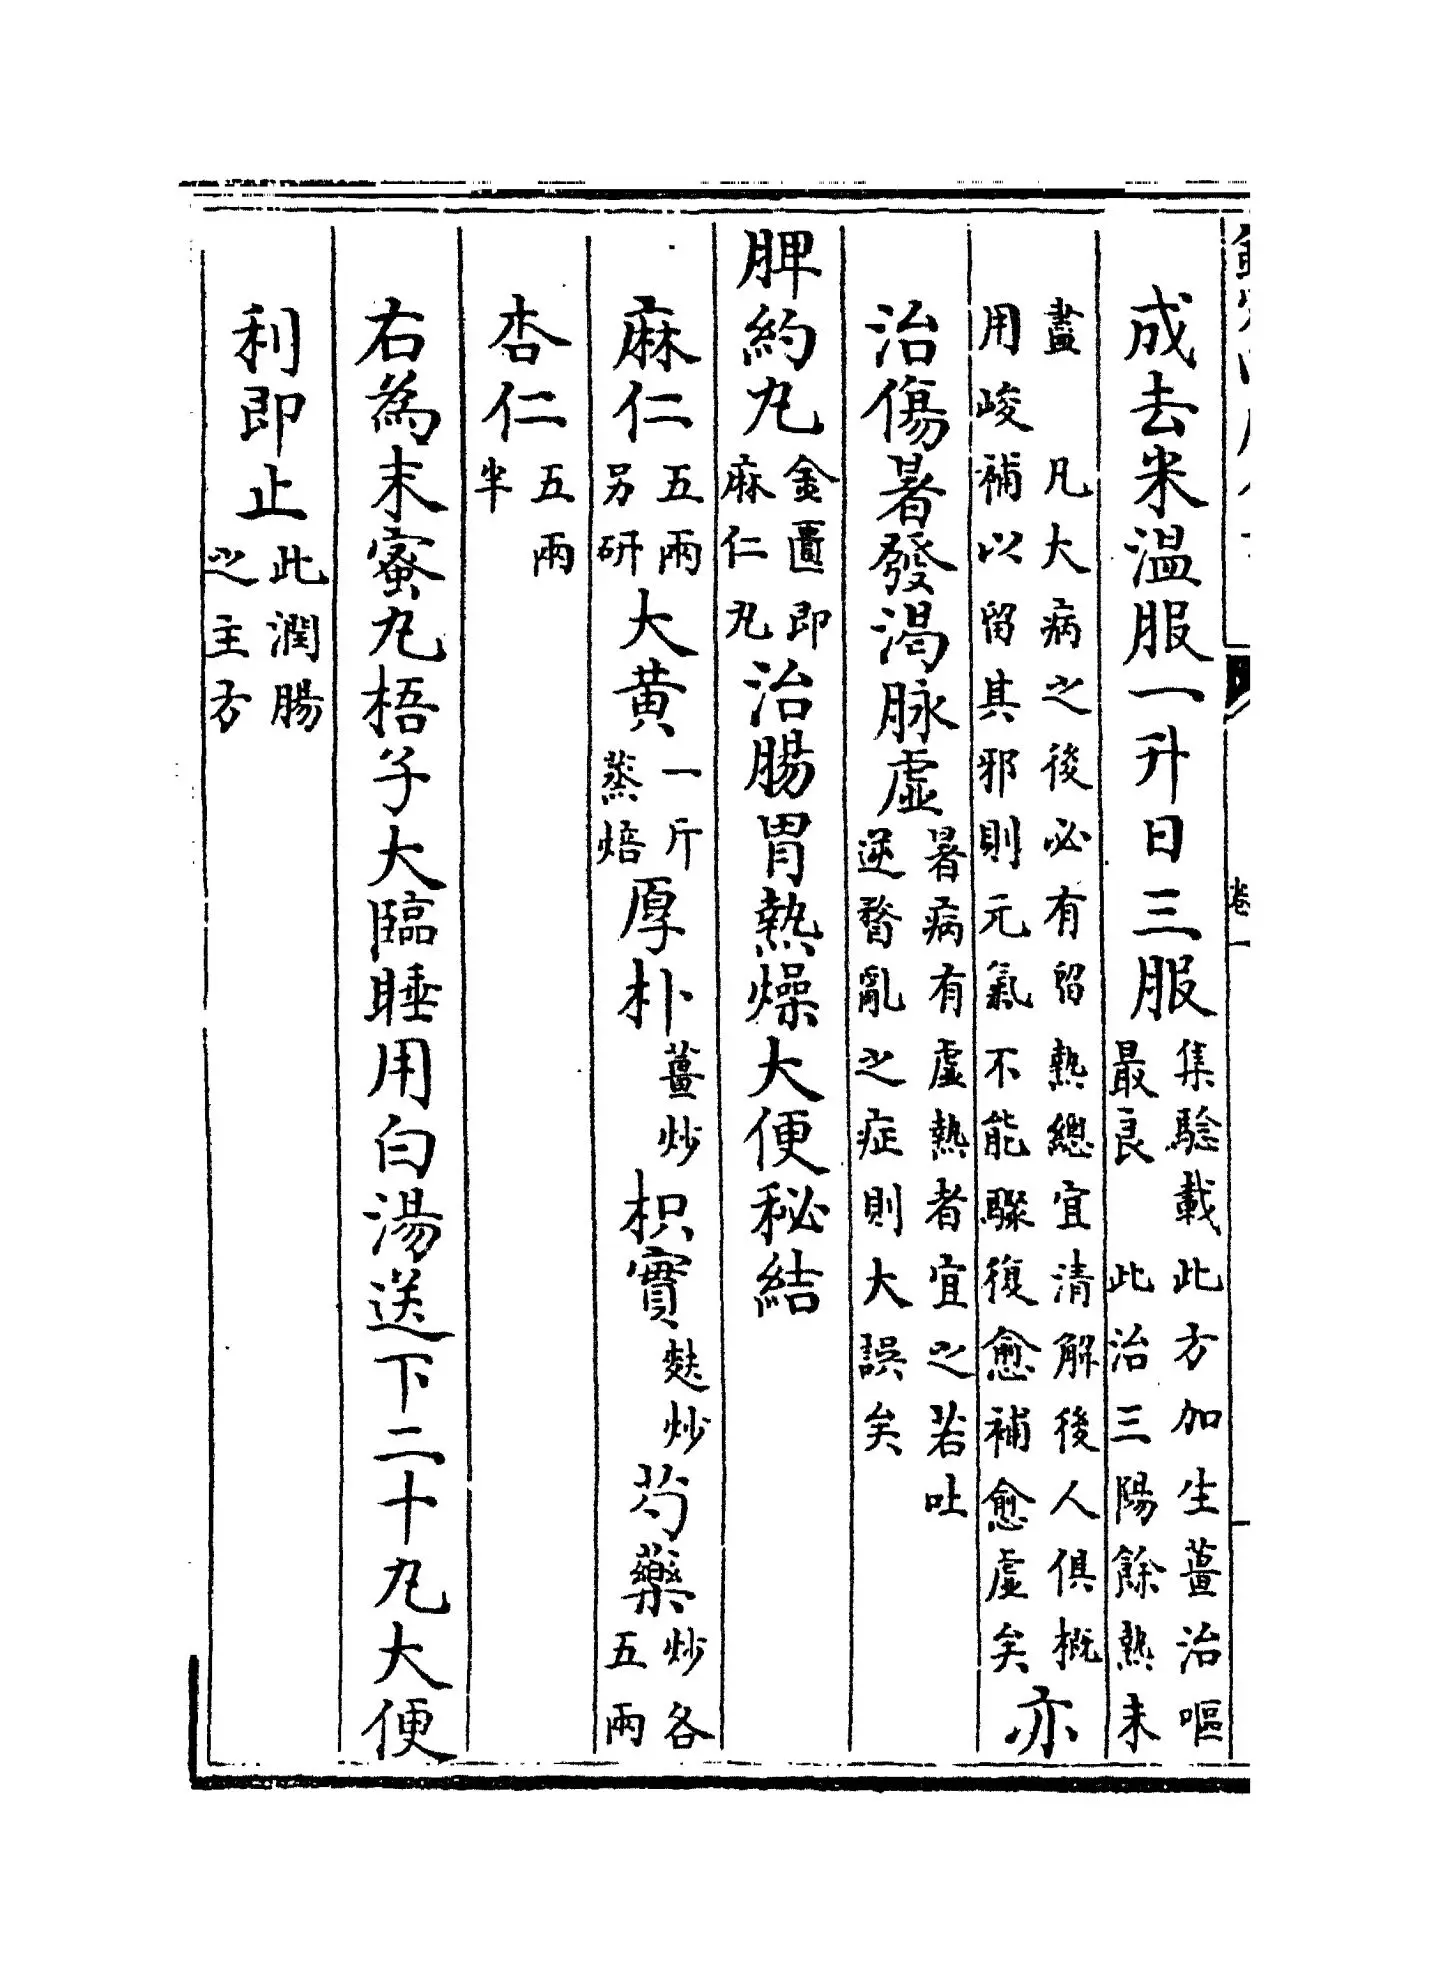 成去米温服一升日三服集驗載此方加生薑治嘔最良 此治三陽餘熱未
盡 凡大病之後必有留熱總宜清解後人俱概用峻補以留其邪則元氣不能驟復愈補愈虛矣亦
治傷暑發渴脉虛暑病有虛熱者宜之若吐逆瞀亂之症則大誤矣
脾約丸金匱即麻仁丸治腸胃熱燥大便秘結
麻仁五兩另研大黄一斤蒸焙厚朴薑炒枳實麩炒芍藥炒各五兩
杏仁五兩半
右為末蜜丸梧子大臨睡用白湯送下二十丸大便
利即止此潤腸之主方